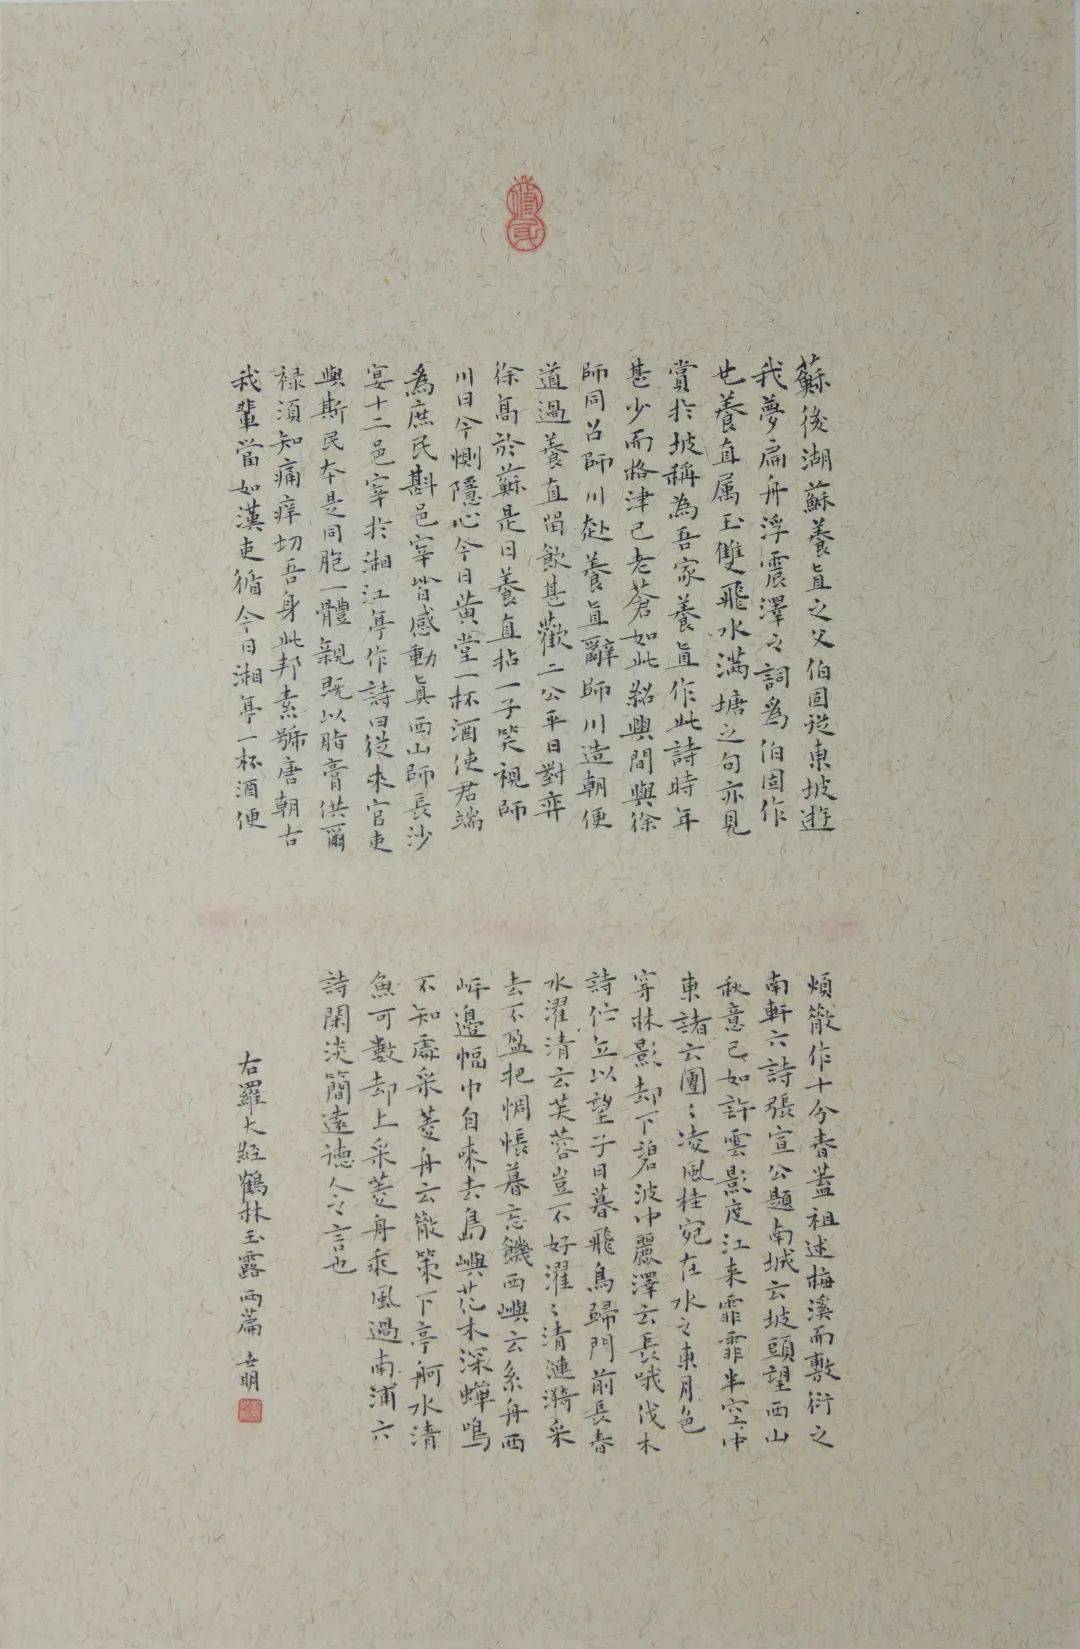 蘇後湖蘇養直之父伯固從東坡遊
我夢扁舟浮震澤之詞為伯固作
也養直属玉雙飛水滿塘之句亦見
賞於坡稱為吾家養直作此詩時年
甚少而格律已老蒼如此紹興間與徐
師同召師川赴養直辭師川造朝便
道過養直留飲甚歡二公平日對弈
徐高於蘇是日養直拈一子笑視師
川曰今惻隱心今日黄堂一杯酒使君端
為庶民斟邑宰皆感動真西山師長沙
宴十二邑宰於湘江亭作詩曰從來官吏
與斯民本是同胞一體親既以脂膏供爾
禄須知痛痒切吾身此邦素號唐朝古
我輩當如漢吏循今日湘亭一杯酒便
煩散作十分春蓋祖述梅溪而敷衍之
南軒六詩張宣公題南城云坡頭望西山
秋意已如許雲影度江来霏霏半空中
東諸云團〻凌風桂宛在水之東月色
穿林影却下碧波中麗澤云長哦伐木
詩伫立以望子日暮飛鳥歸門前長春
水濯清云芙蓉豈不好濯〻清漣漪采
去不盈把惆悵暮忘饑西嶼云系舟西
岸邊幅巾自來去島嶼花木深蟬鳴
不知處采菱舟云散策下亭舸水清
魚可數却上采菱舟乘風過南浦六
詩閑淡簡遠德人之言也
右羅大經鶴林玉露两篇 世明